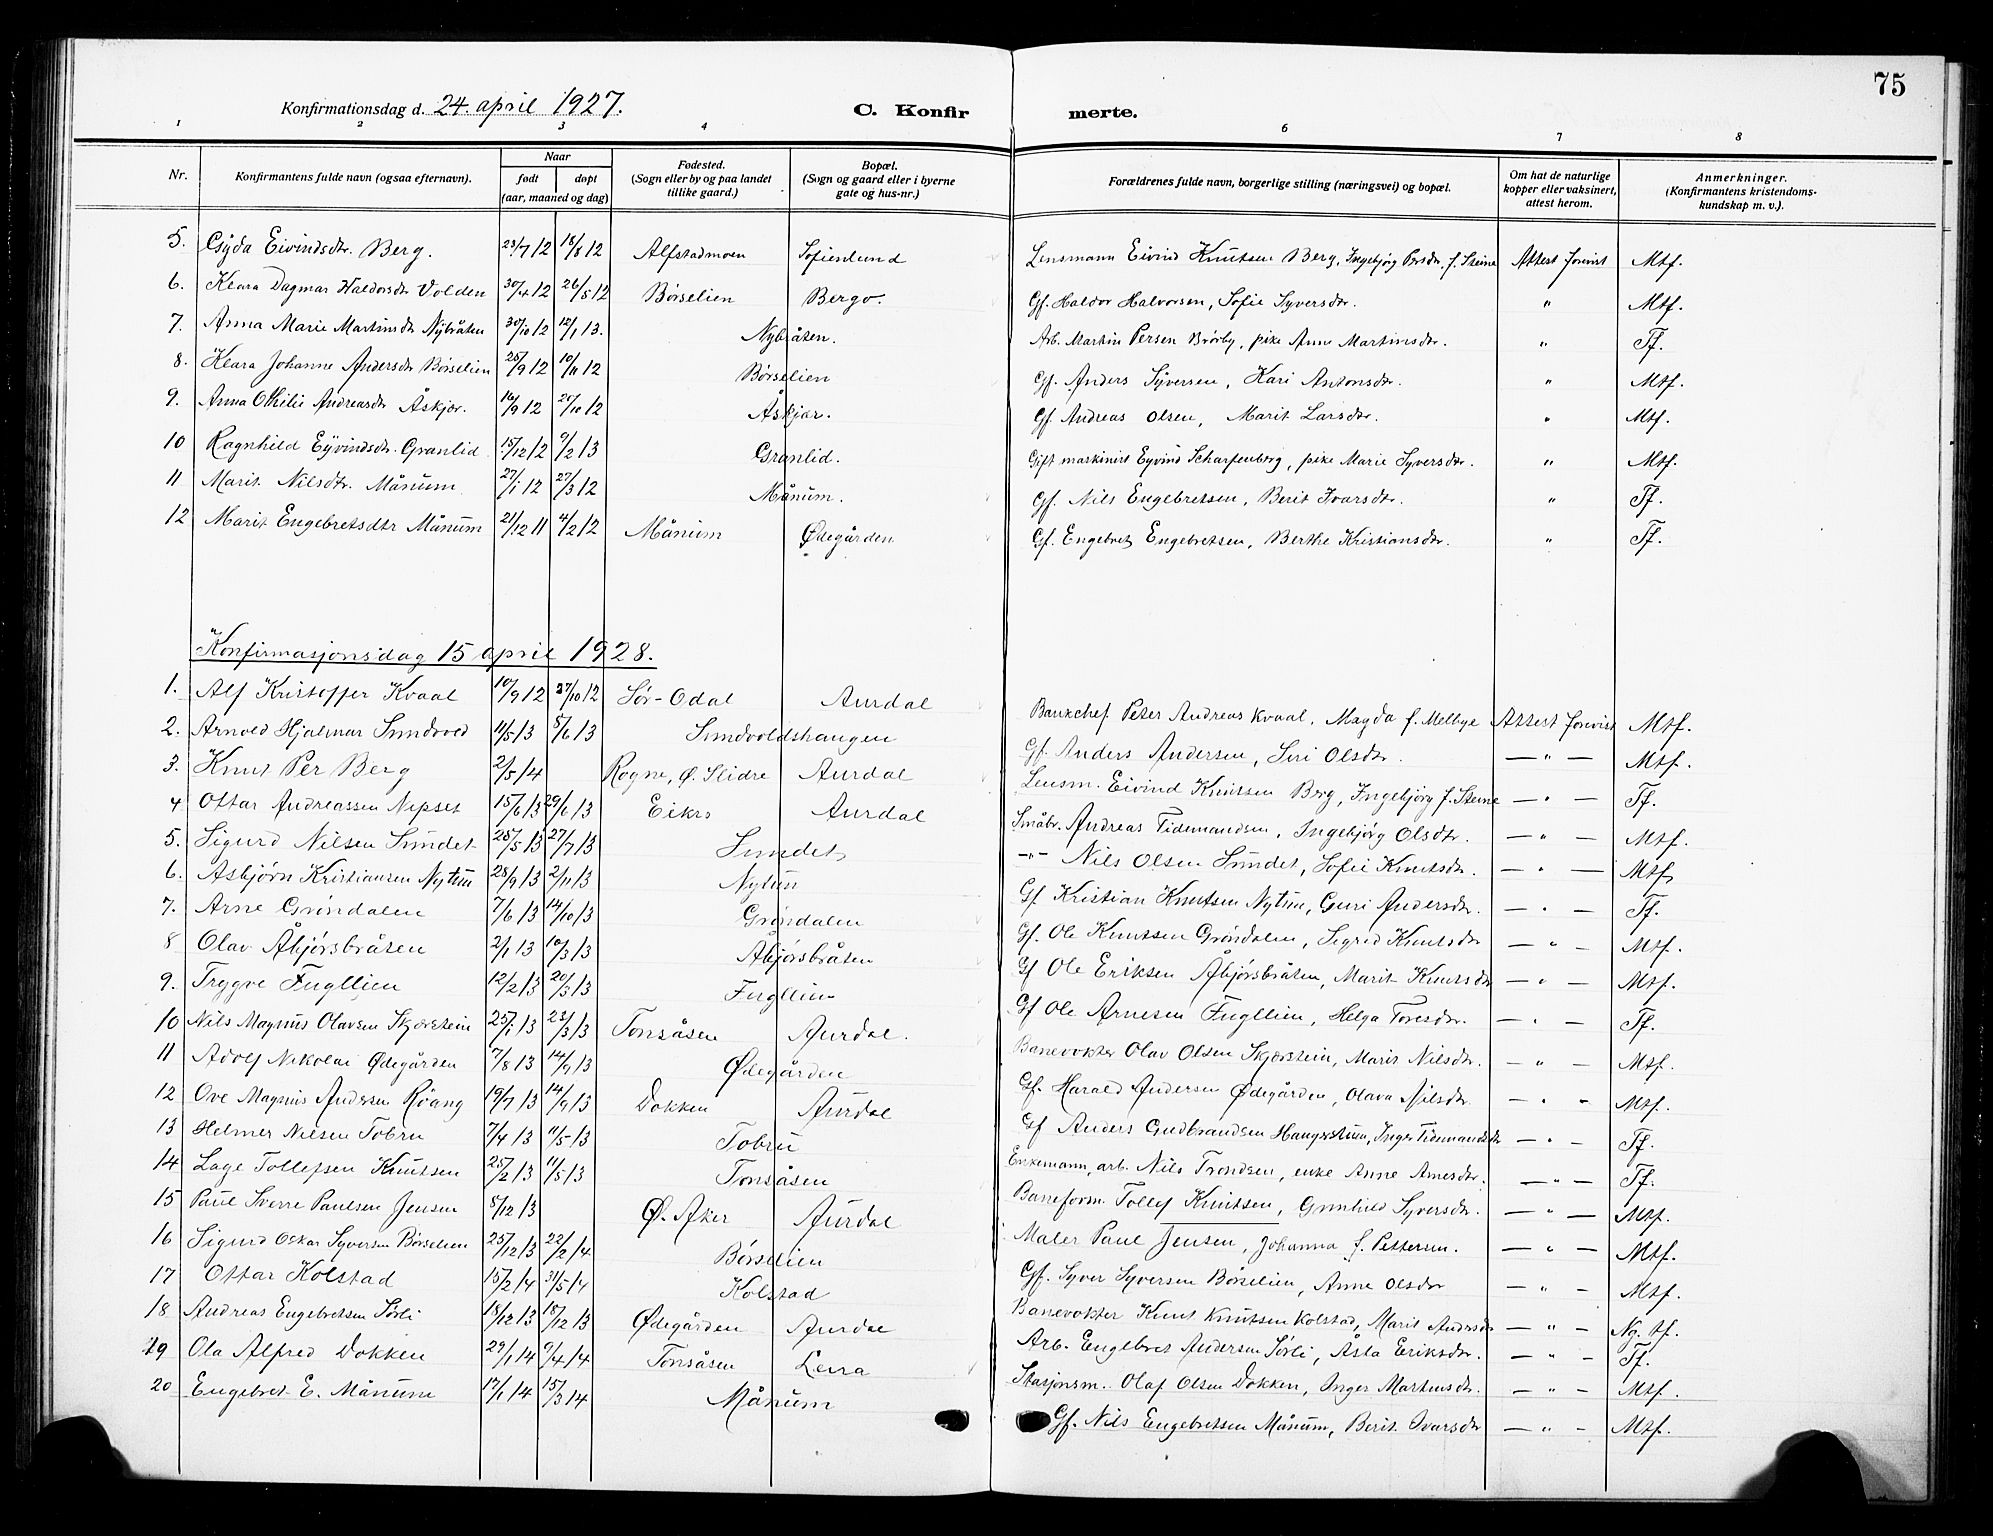 75
Konfirmationsdag d. 24. april 1927.
C. Konfirmerte.
1 2 3 4 6 7 8
Nr.
Konfirmantens fulde navn (ogsaa efternavn).
Naar
født døpt
(aar, maaned og dag)
Fødested.
(Sogn eller by og paa landet
tillike gaard.)
Bopæl.
(Sogn og gaard eller i byerne
gate og hus-nr.)
Forældrenes fulde navn, borgerlige stilling (næringsvei) og bopæl.
Om hat de naturlige
kopper eller vaksinert,
attest herom.
Anmerkninger.
(Konfirmantens kristendoms-
kundskap m. v.).
5. Gyda Eivindsdtr. Berg. 23/7 12 18/8 12 Alfstadmoen Sofienlund Lensmann Eivind Knutsen Berg, Ingebjörg Persdtr. f. Steine Attest forevist Mtf.
6. Klara Dagmar Haldorsdtr Volden 30/4 12 26/5 12 Børselien Bergo. Gf. Haldor Halvorsen, Sofie Syversdtr. " Mtf.
7. Anna Marie Martinsdtr Nybråten 30/10 12 12/1 13. Nybråten. Arb. Martin Persen Brörby, pike Anne Martinsdtr. " Tf.
8. Klara Johanne Andersdtr Børselien 25/9 12 10/11 12 Børselien Gf. Anders Syversen, Kari Antonsdtr. " Mtf.
9. Anna Othilie Andreasdtr Åskjær. 16/9 12 20/10 12 Åskjær. Gf. Andreas Olsen, Marit Larsdtr. " Mtf.
10 Ragnhild Eyvindsdtr. Granlid 15/12 12 9/2 13 Granlid. Gift maskinist Eyvind Scharfenberg, pike Marie Syversdtr. " Mtf.
11 Marit Nilsdtr. Månum 27/1 12 27/3 12 Månum. Gf. Nils Engebretsen, Berit Ivarsdtr. " Tf.
12 Marit Engebretsdtr Månum 21/12 11 4/2 12 Månum Ødegården Gf. Engebret Engebretsen, Berthe Kristiansdtr. " Tf.
Konfirmasjonsdag 15 april 1928.
1. Alf Kristoffer Kvaal 10/9 12 27/10 12 Sør-Odal Aurdal Bankchef Peter Andreas Kvaal, Magda f. Melbye Attest forevist Mtf.
2. Arnold Hjalmar Sundvold 11/5 13 8/6 13 Sundvoldshaugen Gf. Anders Andersen, Siri Olsdtr. — " — Mtf.
3. Knut Per Berg 2/5 14 Rogne, Ø. Slidre Aurdal Lensm. Eivind Knutsen Berg, Ingebjörg f. Steine — " — Tf.
4 Ottar Andreassen Nepset 15/6 13 29/6 13 Eikro Aurdal Småbr. Andreas Tidemandsen, Ingebjørg Olsdtr. — " — Mtf.
5. Sigurd Nilsen Sundet 25/5 13 27/7 13 Sundet -"- Nils Olsen Sundet, Sofie Knutsdtr. — " — Mtf.
6. Asbjörn Kristiansen Nytun 28/9 13 2/11 13 Nytun Gf Kristian Knutsen Nytun, Guri Andersdtr. — " — Tf.
7. Arne Grøndalen 7/6 13 14/10 13 Grøndalen Gf. Ole Knutsen Grøndalen, Sigrid Knutsdtr — " — Mtf.
8 Olav Åbjørsbråten 2/1 13 10/3 13 Åbjørsbråten Gf Ole Eriksen Åbjørsbråten, Marit Knutsdtr — " — Mtf.
9. Trygve Fugllien 12/2 13 20/3 13 Fugllien Gf Ole Arnesen Fugllien, Helga Toresdtr. — " — Tf.
10 Nils Magnus Olavsen Skjærstein 25/1 13 23/3 13 Tonsåsen Aurdal. Banevokter Olav Olsen Skjærstein, Marit Nilsdtr. — " — Mtf.
11 Adolf Nikolai Ødegården 7/8 13 14/9 13 Ødegården Gf. Harald Andersen Ødegården, Olava Nilsdtr. — " — Mtf.
12 Ove Magnus Andersen Röang 19/7 13 14/9 13 Dokken Aurdal Gf Anders Gudbrandsen Haugerstuen, Inger Tidemandsdtr — " — Tf.
13 Helmer Nilsen Tobru 7/4 13 11/5 13 Tobru Enkemann, arb. Nils Trondsen, enke Anne Arnesdtr. — " — Tf.
14 Lage Tollefsen Knutsen 25/2 13 11/5 13 Tonsåsen Baneform. Tollef Knutsen, Gunhild Syversdtr. — " — Mtf.
15 Paul Sverre Paulsen Jensen 5/12 13 Ø. Aker Aurdal Maler Paul Jensen, Johanna f. Pettersen. — " — Mtf.
16 Sigurd Oskar Syversen Børselien 25/12 13 22/2 14 Børselien Gf. Syver Syversen Börselien, Anne Olsdtr — " — Mtf.
17 Ottar Kolstad 15/2 14 31/5 14 Kolstad Banevokter Knut Knutsen Kolstad, Marit Andersdtr — " — Ng. tf.
18 Andreas Engebretsen Sørli 18/12 13 18/12 13 Ødegården Aurdal Arb. Engebret Andersen Sørli, Åsta Eriksdtr. — " — Tf.
19 Ola Alfred Dokken 29/1 14 9/4 14 Tonsåsen Leira Stasjonsm. Olaf Olsen Dokken, Inger Martinsdtr. — " — Mtf.
20 Engebret E. Månum 17/1 14 15/3 14 Månum Gf. Nils Engebretsen Månum, Berit Ivarsdtr — " — Mtf.